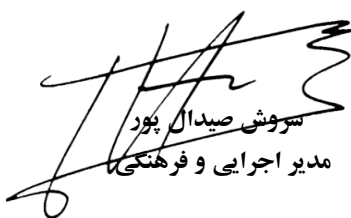 سروش صیدال پور
مدیر اجرایی و فرهنگی